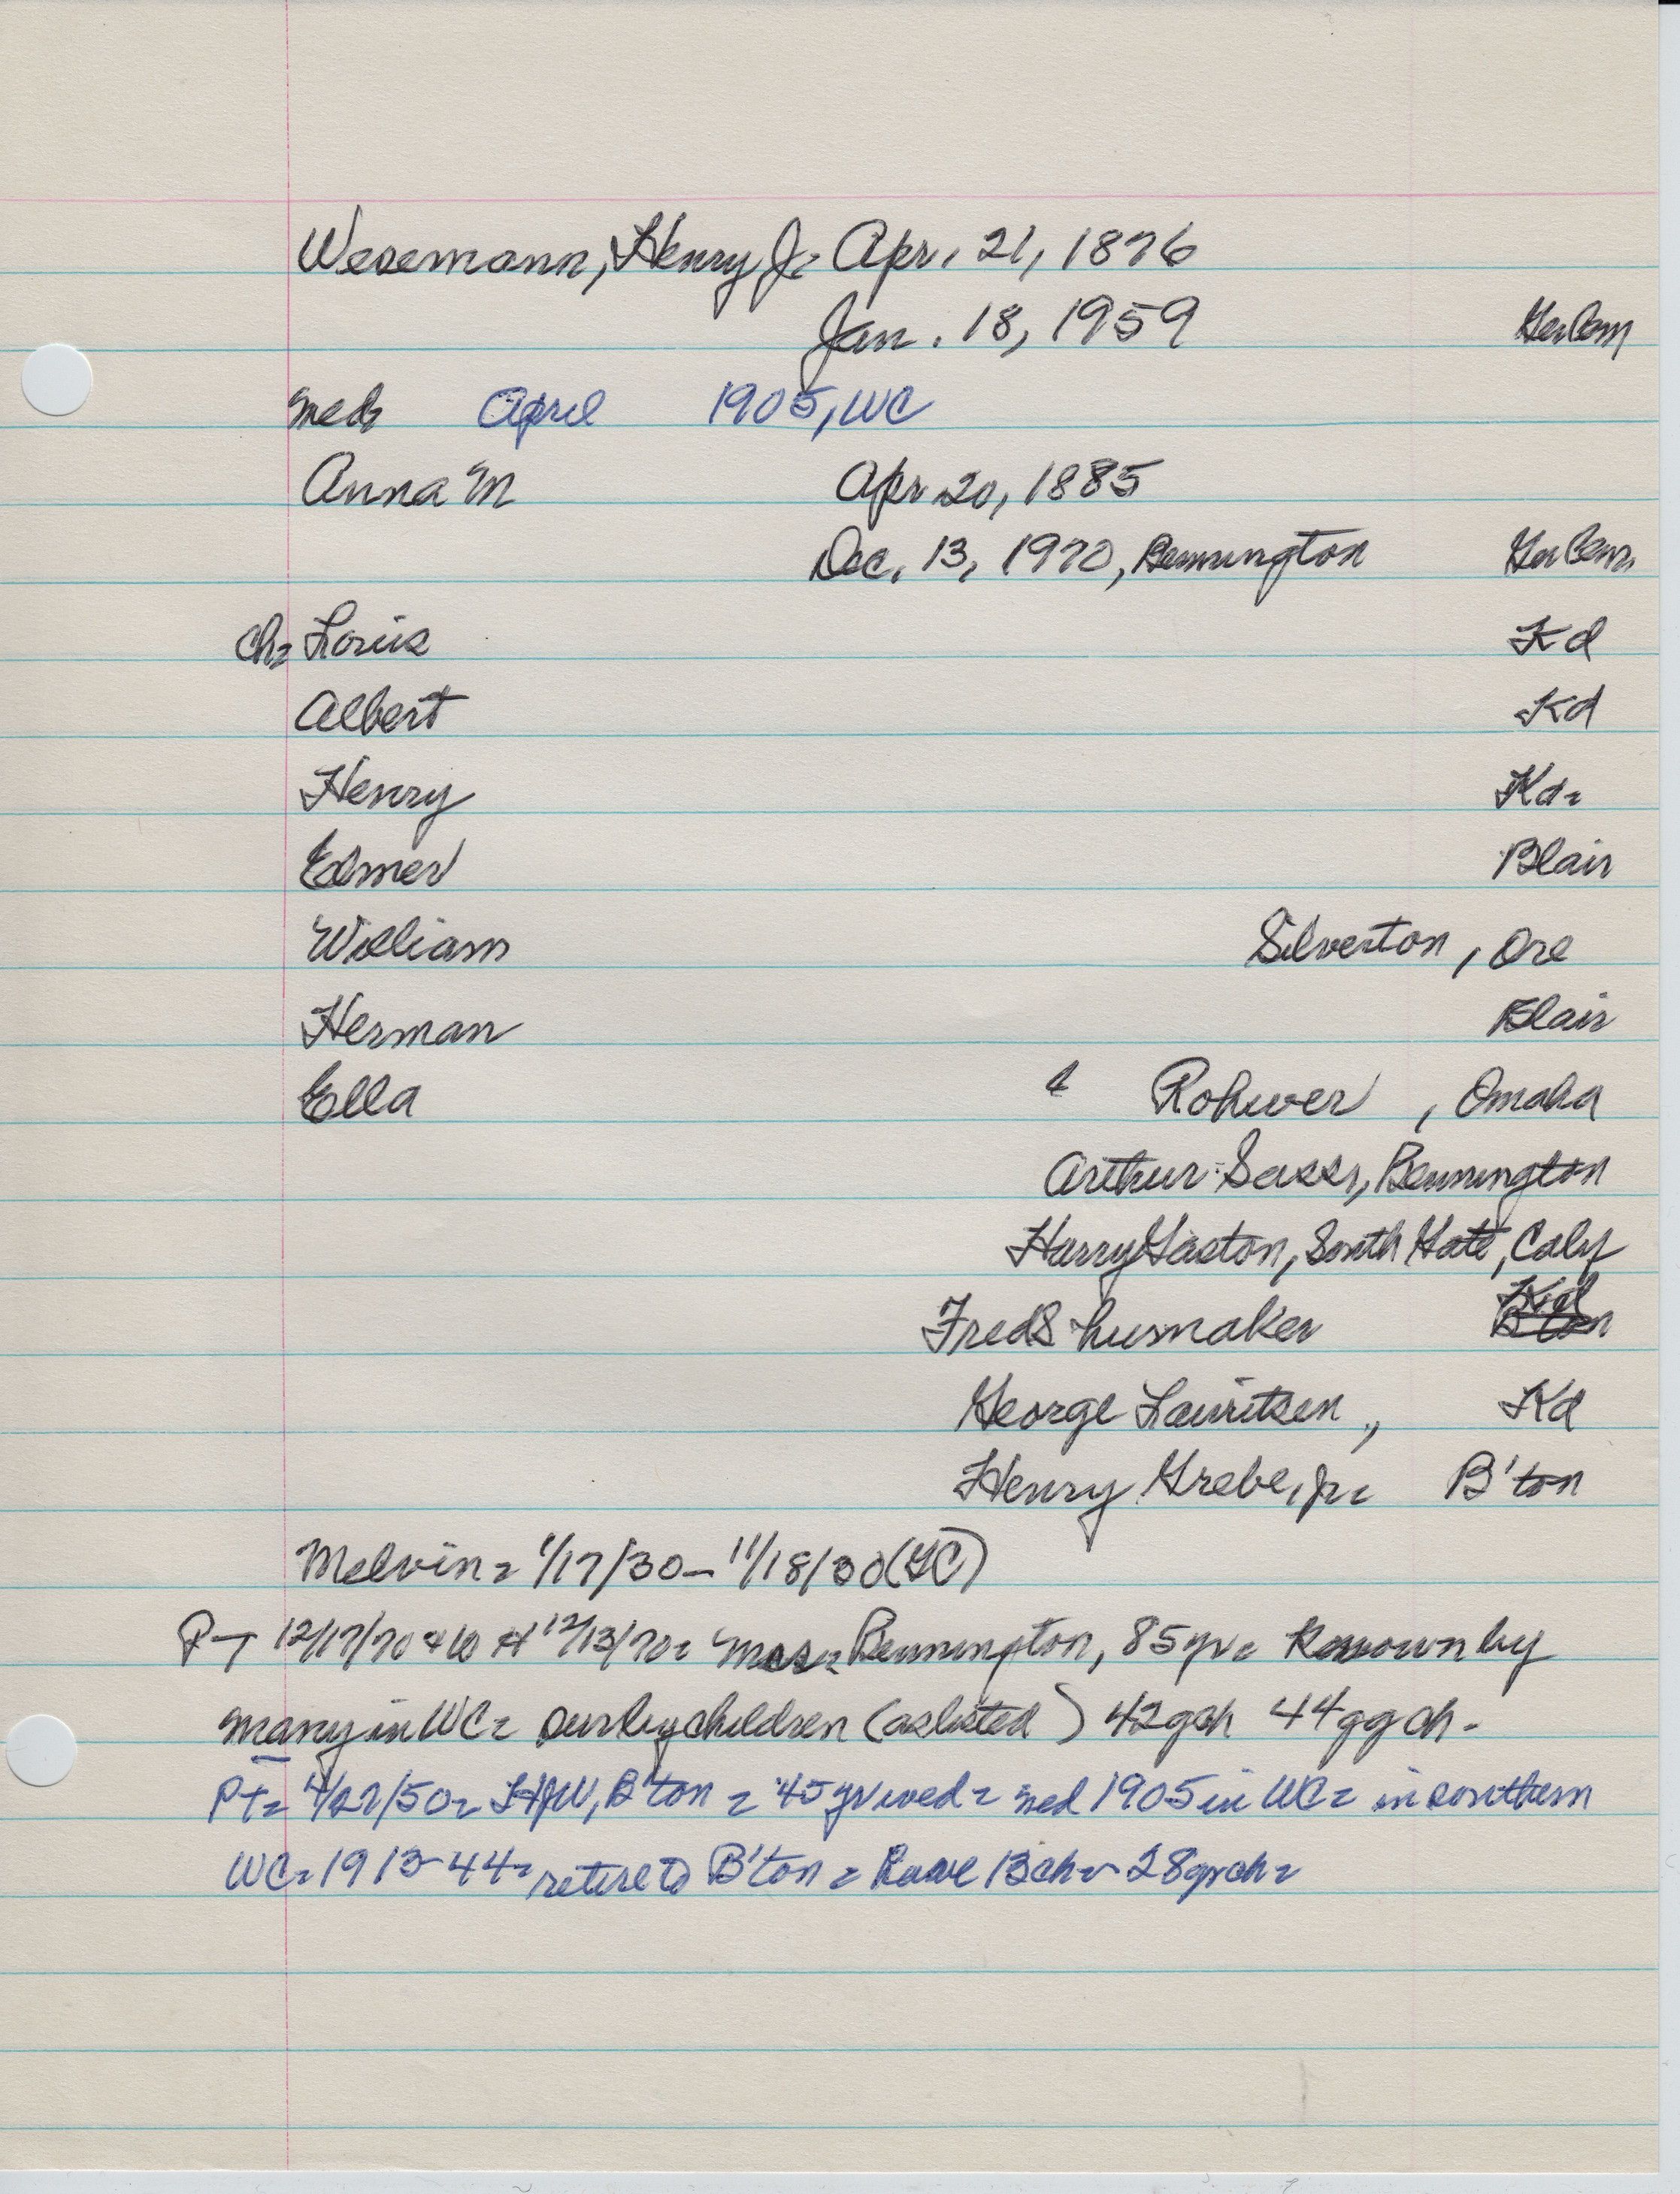 Wesemann, Henry J. Apr. 21, 1876
Jan. 18, 1959 GerCem
med= April 1905, WC
Anna M Apr 20, 1885
Dec. 13, 1970, Bennington GerCem
Ch= Louis Kd
Albert Kd
Henry Kd=
Elmer Blair
William Silverton, Ore
Herman Blair
Ella & Rohwer, Omaha
Arthur Sass, Bennington
Harry Gaston, South Gate, Calif
Fred Shumaker Kd
George Lauritsen, Kd
Henry Grebe, Jr= B'ton
Melvin= 1/17/30 – 11/18/30 (GC)
PT 12/17/70 12/13/70= Mrs= Bennington, 85yr= Known by
many in WC= surv by children (as listed) 42 gch 44 ggch-
PT= 4/27/50= HJW, B'ton = 45 yr wed = med 1905 in WC= in southern
WC= 1913-44= retire to B'ton = have 13 ch= 28 grch=